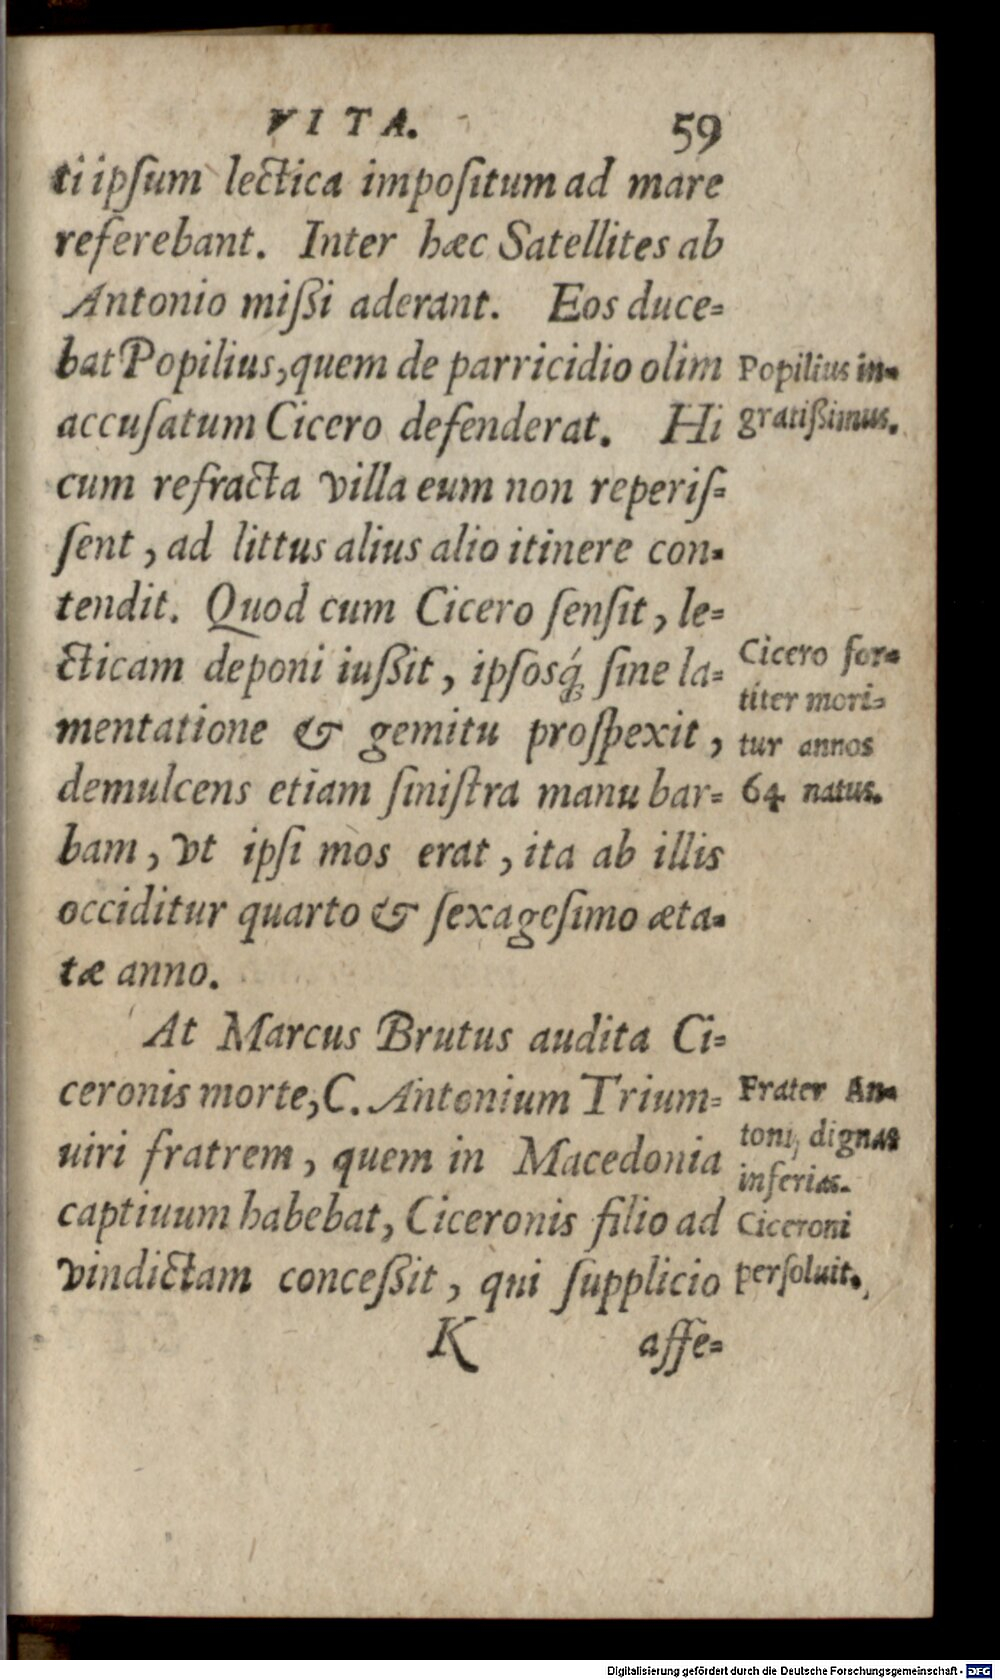 VITA. 59
ti ipſum lectica impoſitum ad mare
referebant. Inter hæc Satellites ab
Antonio miſſi aderant. Eos duce=
bat Popilius, quem de parricidio olim
accuſatum Cicero defenderat. Hi
cum refracta villa eum non reperiſ=
ſent, ad littus alius alio itinere con=
tendit. Quod cum Cicero ſenſit, le=
cticam deponi iuſſit, ipſosq́; ſine la=
mentatione & gemitu proſpexit,
demulcens etiam ſiniſtra manu bar=
bam, vt ipſi mos erat, ita ab illis
occiditur quarto & ſexageſimo æta=
tæ anno.
At Marcus Brutus audita Ci=
ceronis morte, C. Antonium Trium=
uiri fratrem, quem in Macedonia
captiuum habebat, Ciceronis filio ad
vindictam conceſſit, qui ſupplicio
K affe=
Popilius in=
gratiſſimus.
Cicero for=
titer mori=
tur annos
64 natus.
Frater An=
tonij dignas
inferias.
Ciceroni
perſoluit.
Digitalisierung gefördert durch die Deutsche Forschungsgemeinschaft - DFG